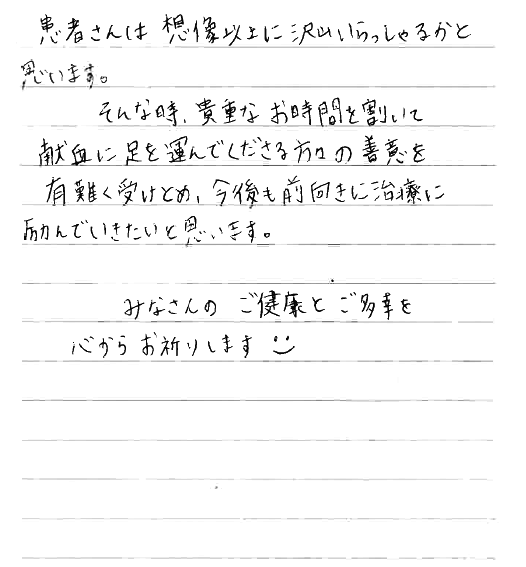 患者さんは想像以上に沢山いらっしゃるかと
思います。
そんな時、貴重なお時間を割いて
献血に足を運んでくださる方々の善意を
有難く受けとめ、今後も前向きに治療に
励んでいきたいと思います。
みなさんのご健康とご多幸を
心からお祈りします